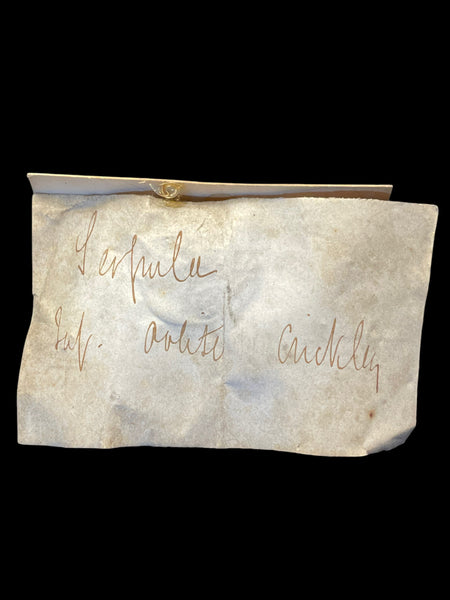 Serpula
Inf. Oolite Crickley